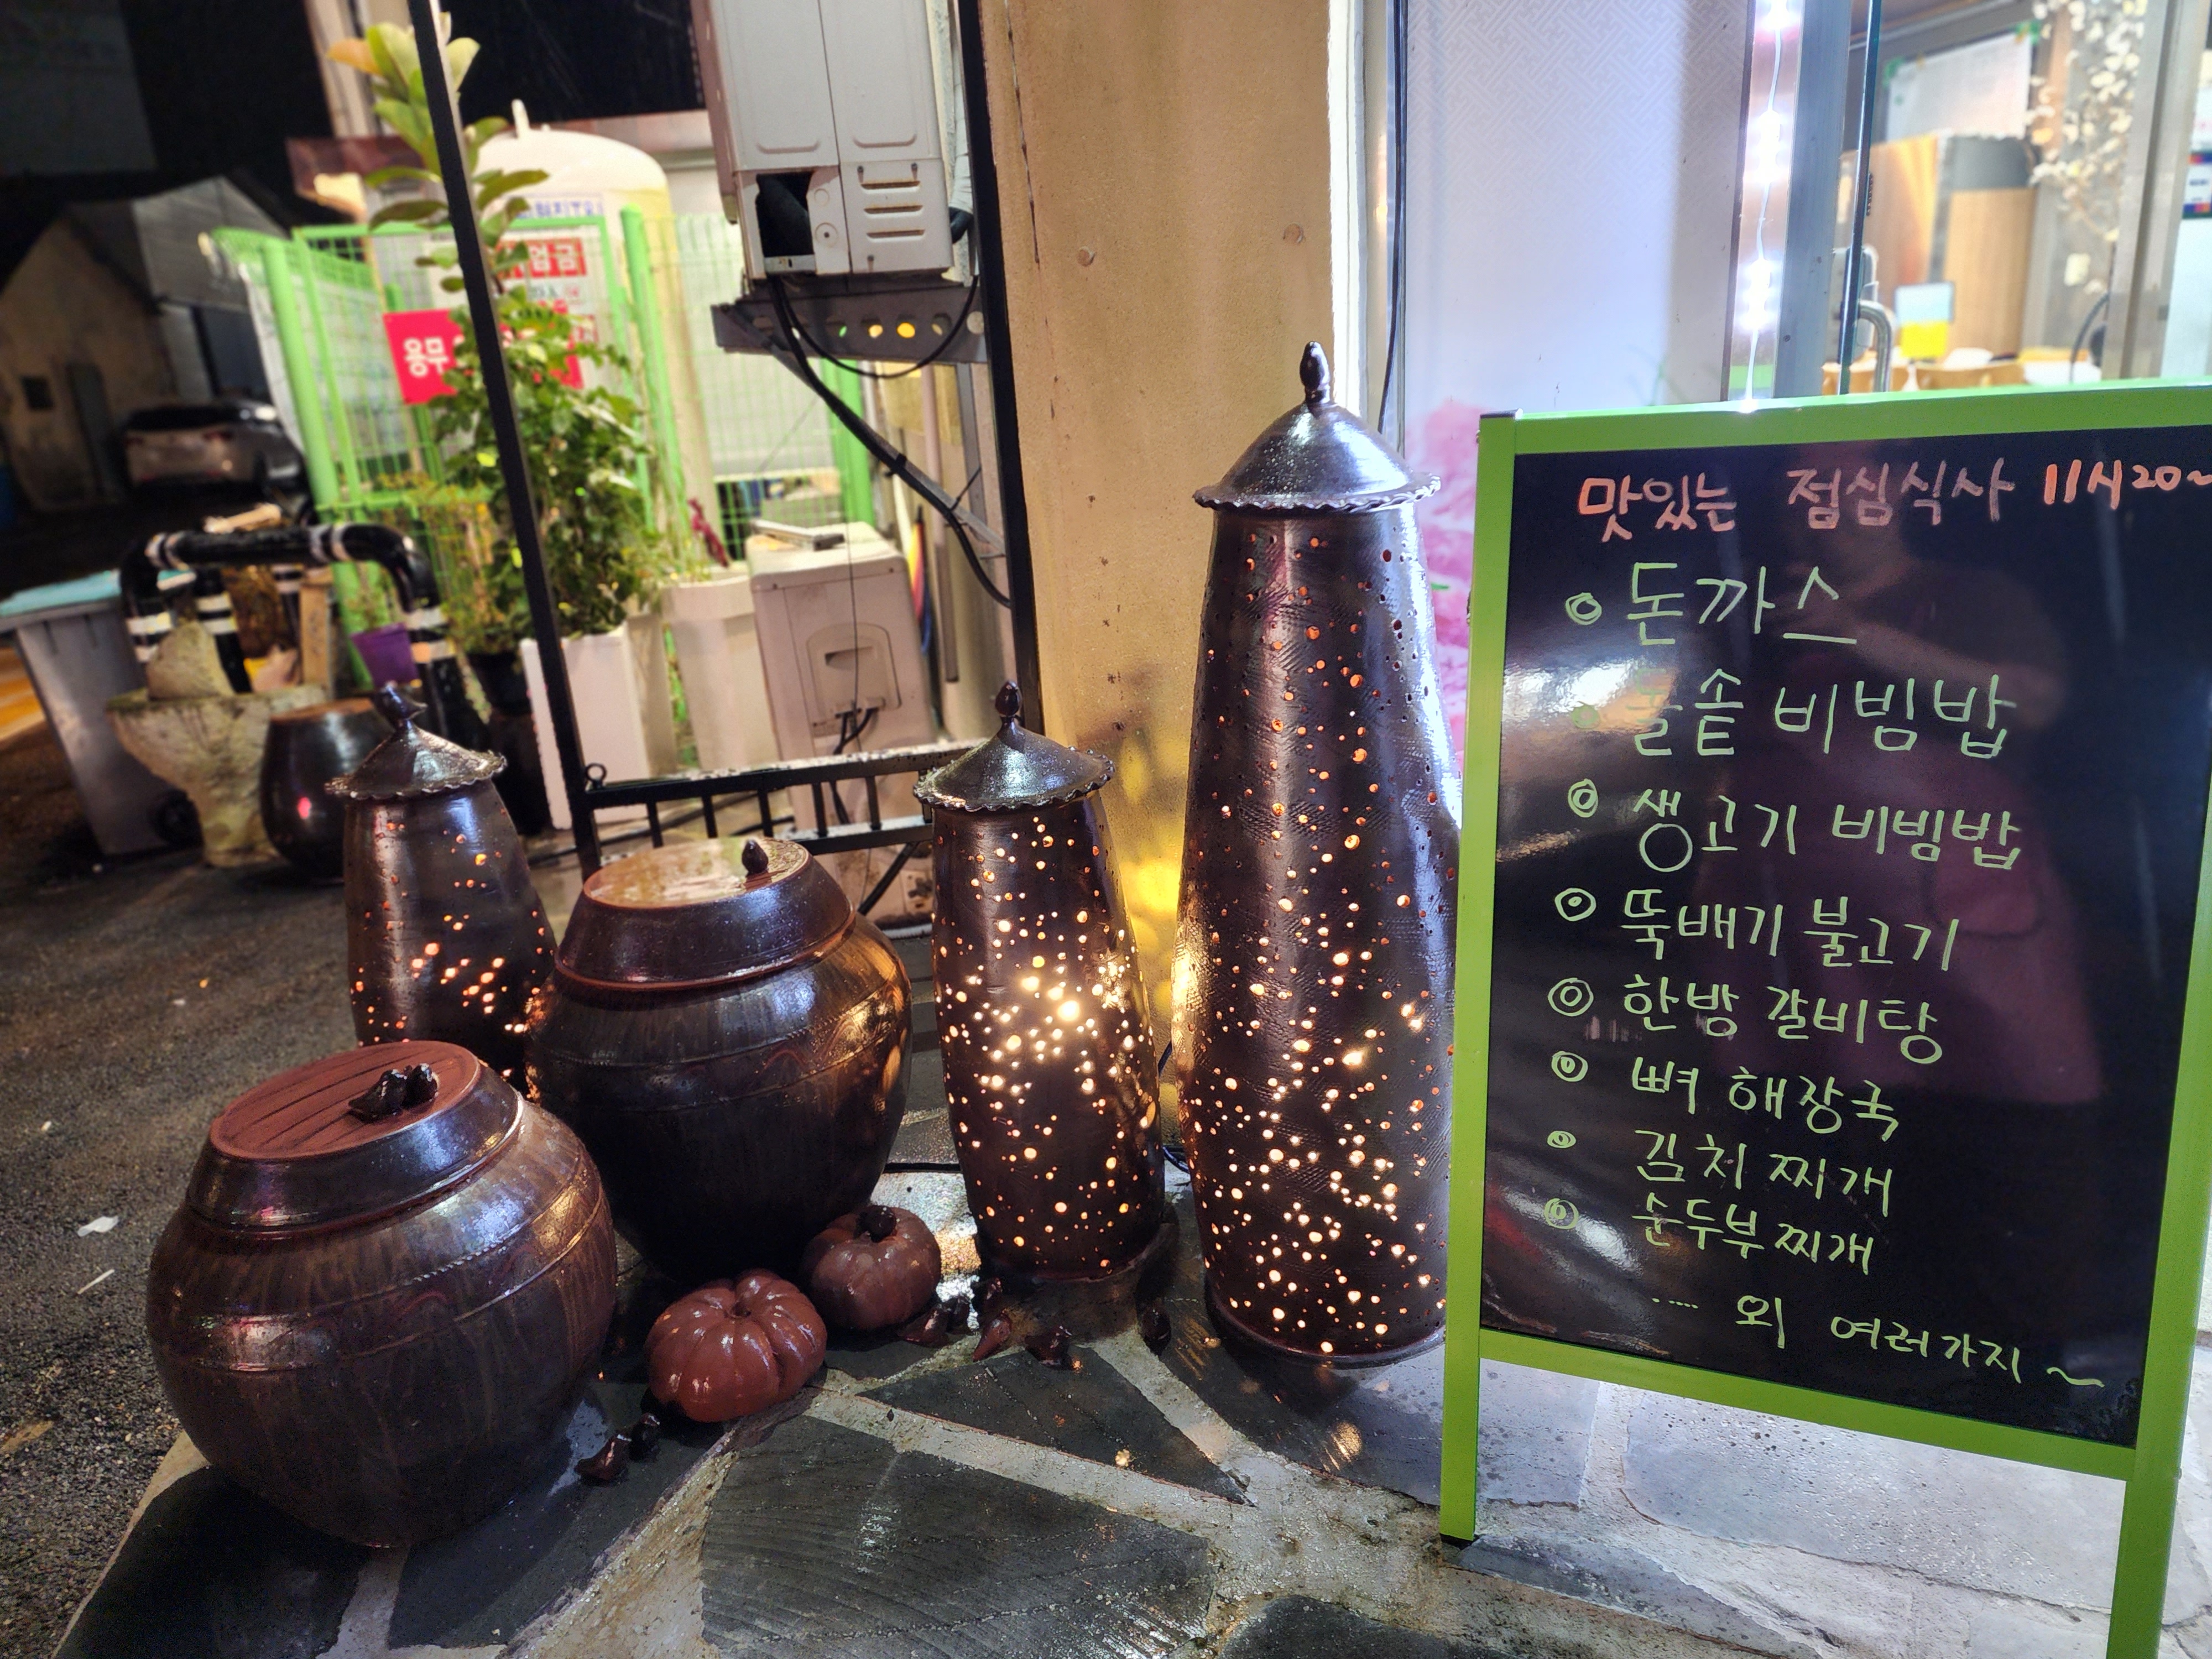 맛있는 점심식사 11시20~
◎ 돈까스
◎ 돌솥 비빔밥
◎ 생고기 비빔밥
◎ 뚝배기 불고기
◎ 한방 갈비탕
◎ 뼈 해장국
◎ 김치 찌개
◎ 순두부 찌개
..... 외 여러가지~
엄금
용무